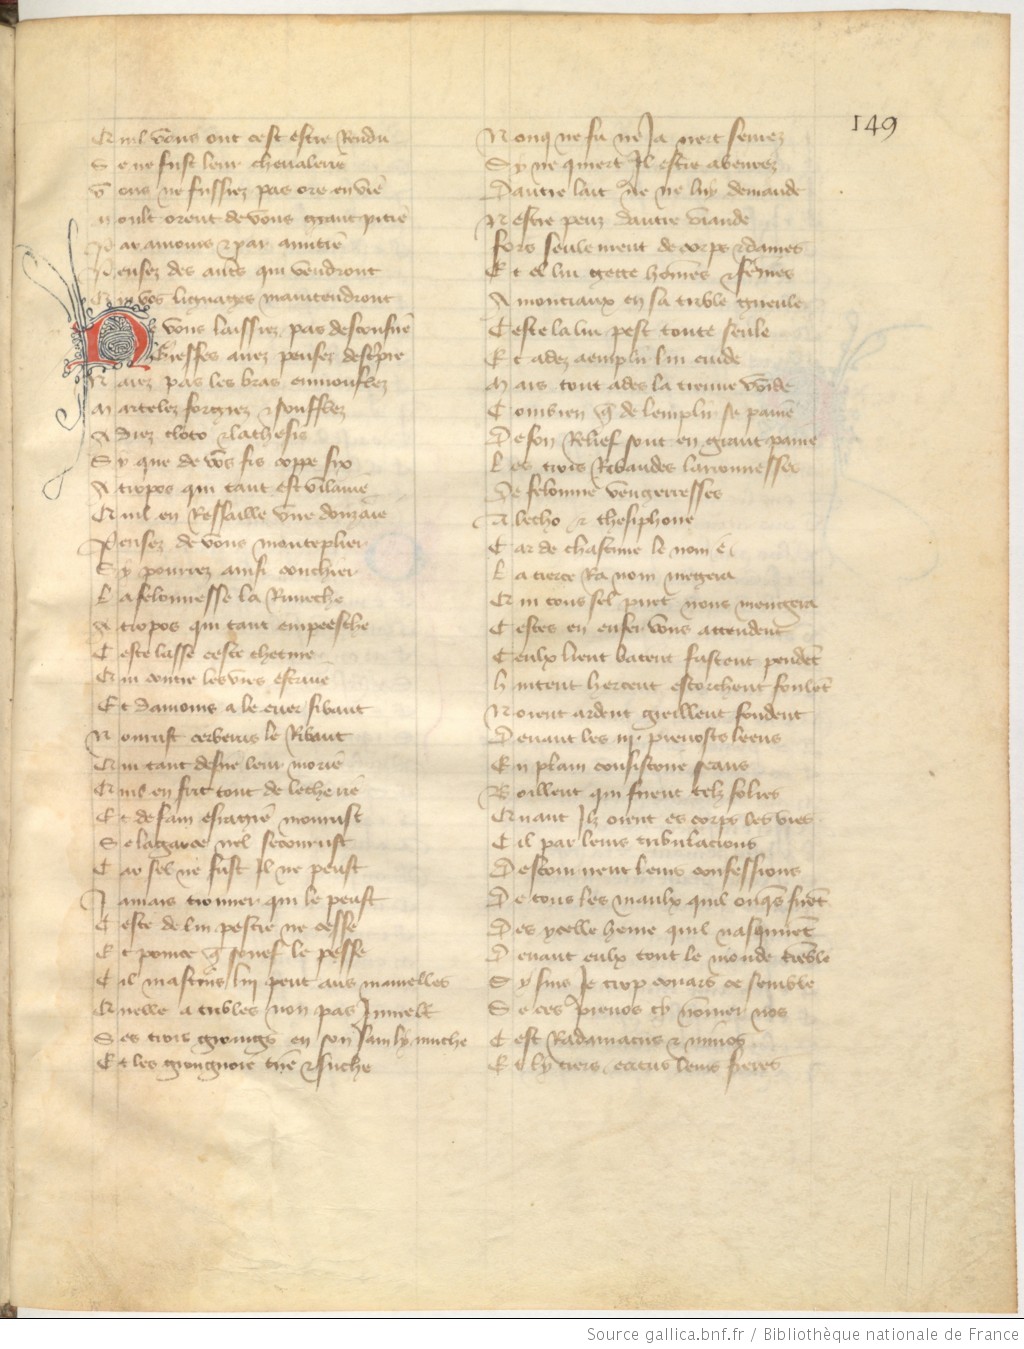 149
Qui vous ont cest estre Rendu
Se ne fust leur cheualerie
Vous ne fussiez pas ore en vie
Moult orent de vous grant pitie
Par amours & par amitie
Pensez des autres qui vendront
Qui vos lignages maintendront
Ne vous laissiez pas desconfire
Gresses auez pensez descripre
Naiez pas les bras emmouflez
Martelez forgiez & soufflez
Aidiez cloto & lathesis
Sy que de vos fis coppe six
Atropos qui tant est vilaine
Quil en Ressaille vne douzaine
Pensez de vous monteplier
Sy pourrez ainsi conchier
La felonnesse la Rinesche
Atropos qui tant empeesche
Ceste lasse ceste chetiue
Qui contre les vies estriue
Et damours a le cuer si
Nourrist cerberus le Ribaut
Qui tant desire leur morie
Quil en frit tout de lecherie
Et de fain esragie mourust
Se la garce nel secourust
Car sel ne fust Il ne peust
Jamais trouuer qui le peust
Ceste de lui pestre ne cesse
Et pource que souef le pesse
Cil mastins lui pent aus mamelles
Quelle a tribles non pas Jumelles
Ses trois groings en son sain ly muche
Et les groignoie tire & suche
Nonq ne fu ne Ja nert seurez
Sy ne quiert Il estre abeurez
Dautre lait ne ne luy demande
Nestre peuz dautre viande
fors seulement de corps & dames
Et el lui gette hommes & femmes
A monciaux en sa trible gueule
Ceste la lui pest toute seule
Et adez aemplir lui cuide
Mais tout ades la treuue vuide
Combien que de lemplir se paine
De son Relief sont en grant paine
Les trois Ribaudes larronnesses
De felonnie vengerresses
Alecho & thesiphone
Car de chascune le nom e
La tierce Ra nom megera
Qui tous sel puet vous mengera
Cestes en enfer vous attendent
Ceulx lient batent fustent pendent
hurtent hercent escorchent foulent
Noient ardent greillent fondent
Deuant les iij. preuosts leens
En plain consistoire seans
Boillent qui firent telz folies
Quant Ilz orent es corps les vies
Cil par leurs tribulacions
Descouurent leurs confessions
De tous les maulx quil onques firent
Des ycelle heure quil nasquirent
Deuant eulx tout le monde tremble
Sy suis Je trop couars ce semble
Se ces preuos cy nommer nos
Cest Radamacus & minos
Et ly tiers eacus leurs freres
Source gallica.bnf.fr / Bibliothèque nationale de France